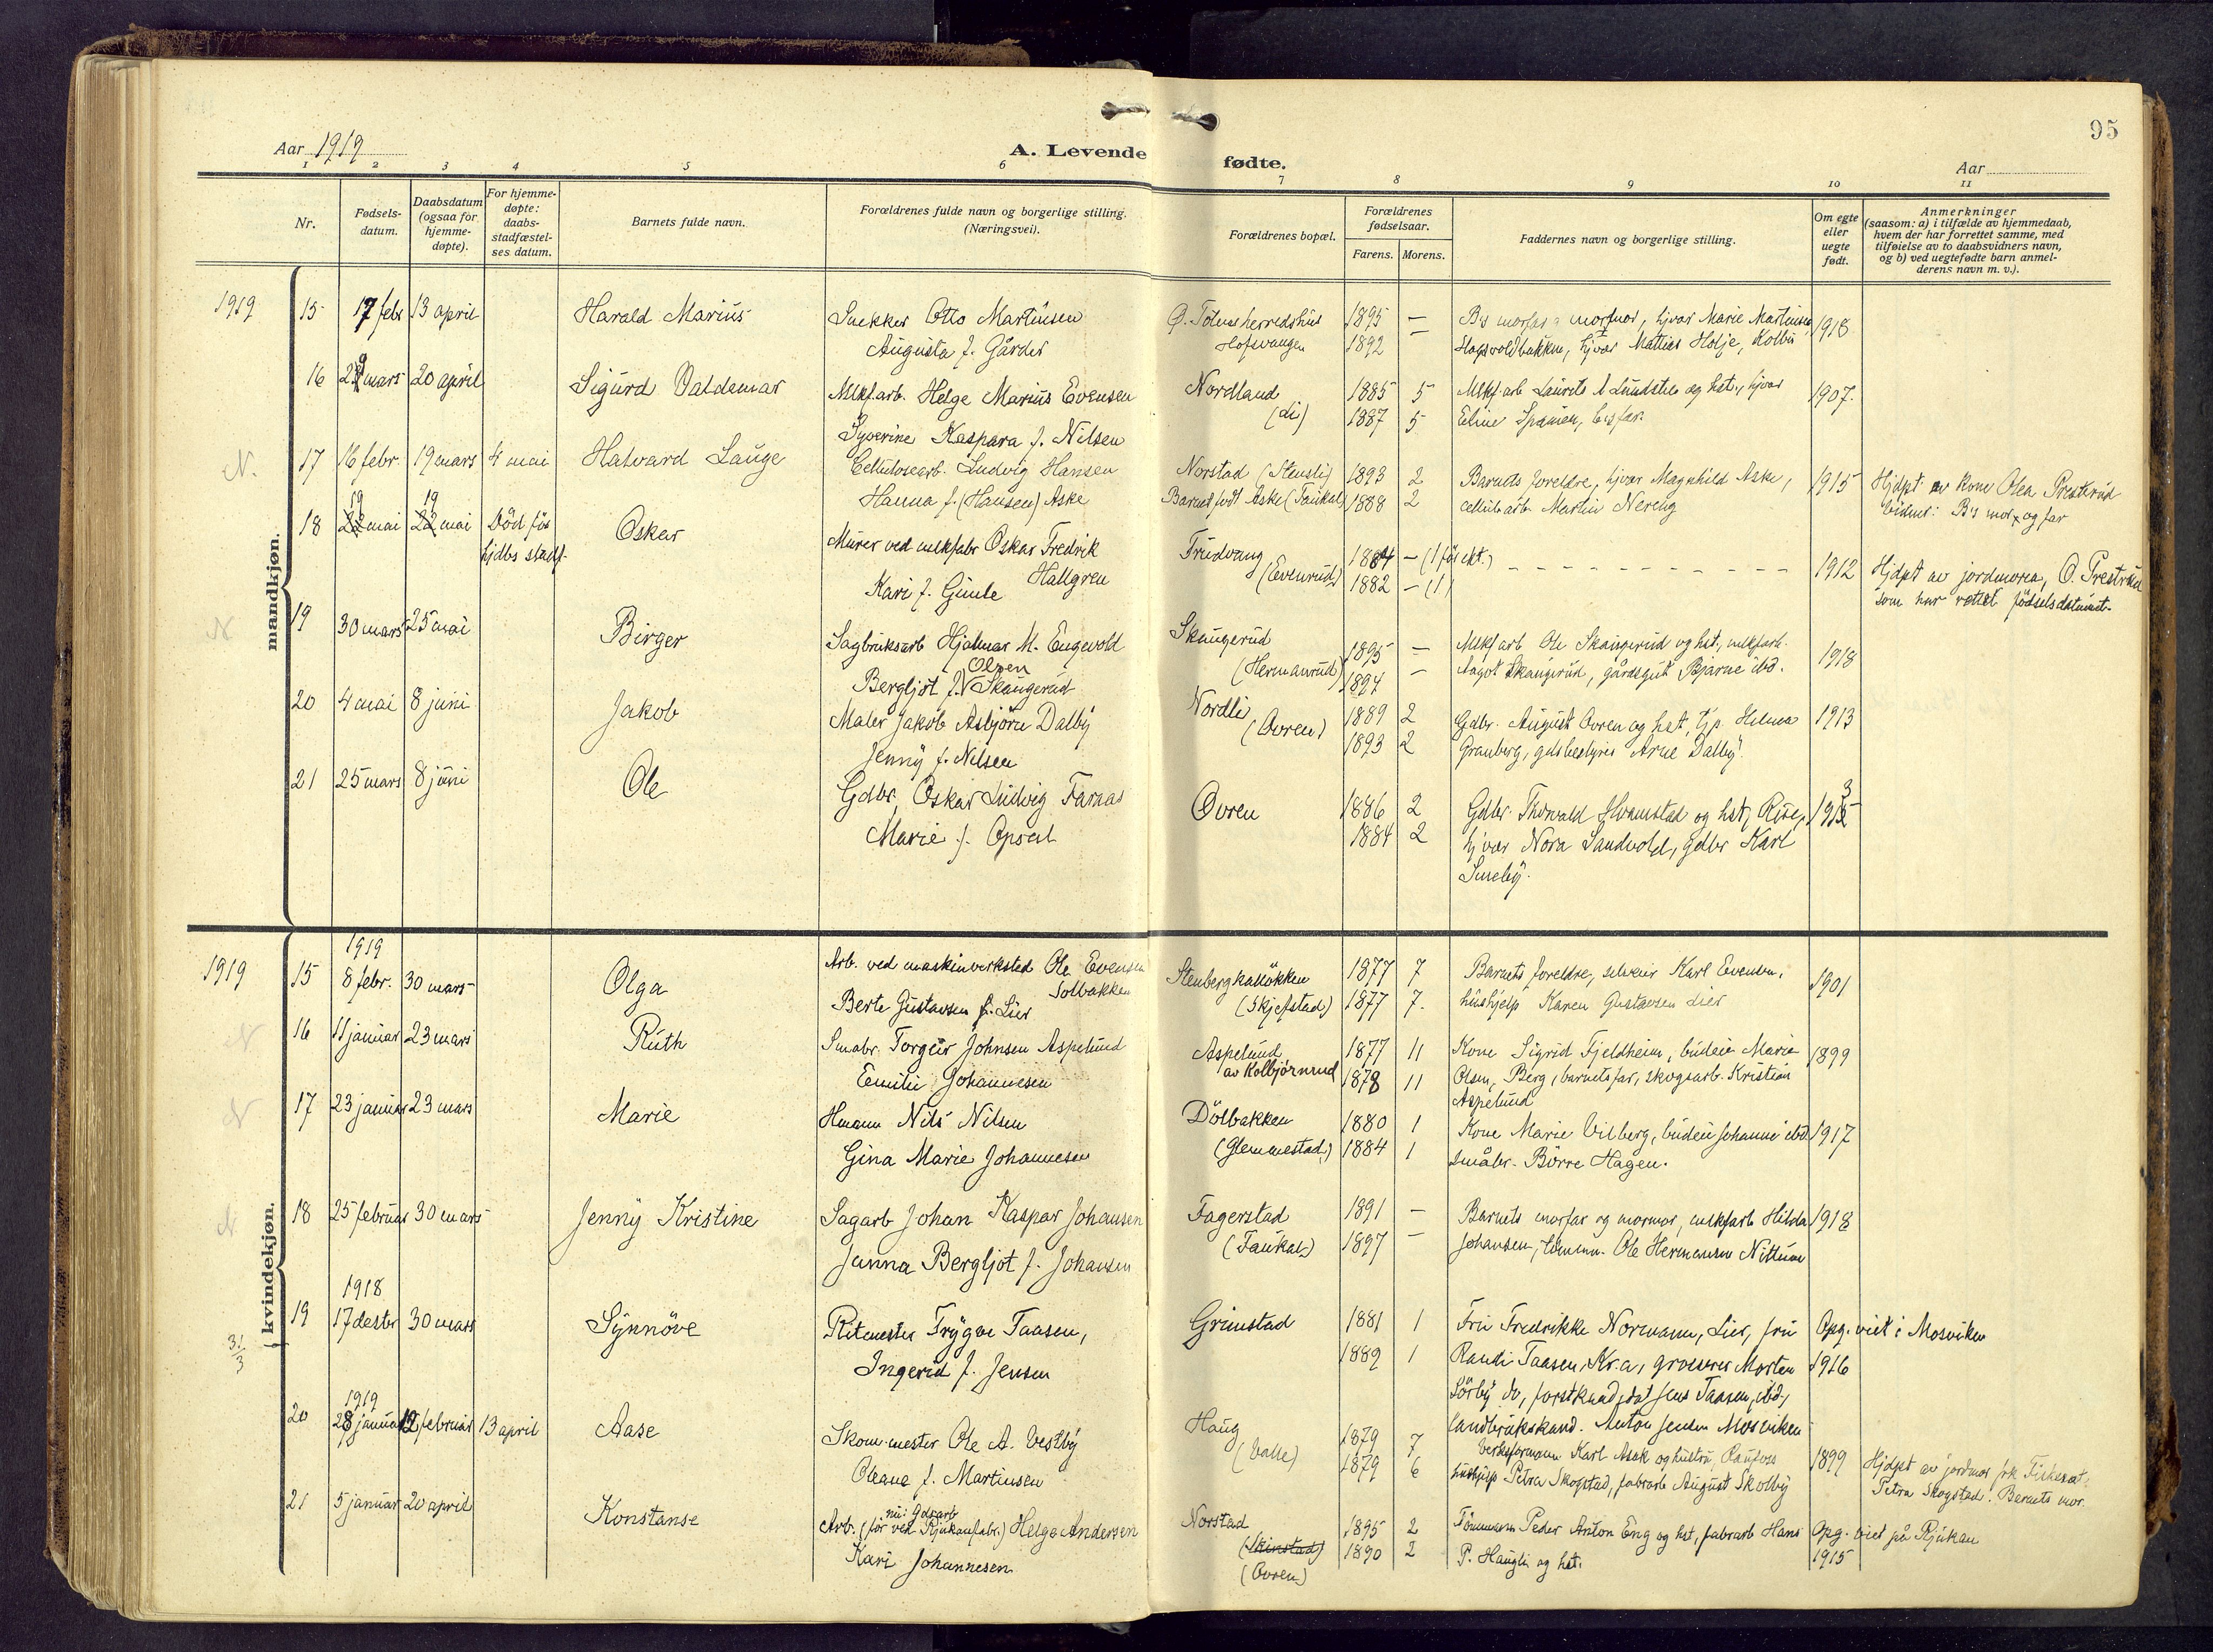 95
Aar 1919
A. Levende fødte.
Aar
1 2 3 4 5 6 7 8 9 10 11
Nr.
Fødsels-
datum.
Daabsdatum
(ogsaa for
hjemme-
døpte).
For hjemme-
døpte:
daabs-
stadfæstel-
ses datum.
Barnets fulde navn.
Forældrenes fulde navn og borgerlige stilling.
(Næringsvei).
Forældrenes bopæl.
Forældrenes
fødselsaar.
Farens. Morens.
Faddernes navn og borgerlige stilling.
Om egte
eller
uegte
født.
Anmerkninger
(saasom: a) i tilfælde av hjemmedaab,
hvem der har forrettet samme, med
tilføielse av to daabsvidners navn,
og b) ved uegtefødte barn anmel-
derens navn m. v.).
mandkjøn.
1919 15 17 febr 13 april Harald Marius Snekker Otto Martinsen Ø. Totens herredshus 1895 — B's morfar morfmor, hjvær Marie Martinsen 1918
Augusta f. Gårder Hofsvangen 1892 — Hagsvoldbakken, hjvær Matties Holje, Kolbu
16 29 mars 20 april Sigurd Valdemar Mlkf.arb. Helge Marius Evensen Nordland 1885 5 Mlkf.arb Laurits A Lundstein og hst., hjvær 1907.
Syverine Kaspara f. Nilsen (Li) 1887 5 Eline Spanien, b's far.
N. 17 16 febr. 19 mars 4 mai Halvard Lauge Cellulosearb. Ludvig Hansen Norstad (Stensli) 1893 2 Barnets foreldre, hjvær Magnhild Aske, 1915 Hjdøpt av kone Olea Prestrud
Hanna f. (Hansen) Aske Barnet født Aske (Taukal) 1888 2 cellularb. Martin Nereng Vidner: B's mor og far
19 19
18 22 mai 22 mai Død før Oskar Murer ved mlkfabr Oskar Fredrik Trudvang 1884 — (1 før ekt.) 1912 Hjdøpt av jordmoren, O. Prestrud
hjdbs stadf. Hallgren
Kari f. Gimle (Evenrud) 1882 — (1) som har rettet fødselsdatumet.
N 19 30 mars 25 mai Birger Sagbruksarb Hjalmar M. Engevold Skaugerud 1895 — Mlkfarb Ole Skaugerud og hst., mlkfarb. 1918
Olsen
Bergljot f. Skaugerud (Hermanrud) 1894 — Aagot Skaugerud, gårdsgut Bjarne ibd.
20 4 mai 8 juni Jakob Maler Jakob Asbjörn Dalby Nordli 1889 2 Gdbr. August Ovren og hst, tjp. Helma 1913
Jenny f. Nilsen (Ovren) 1893 2 Granberg, gdsbestyrer Arne Dalby.
21 25 mars 8 juni Ole Gdbr. Oskar Ludvig Farnas Ovren 1886 2 Gdbr. Thorvald Hvamstad og hst, Rise, 1913
Marie f. Opsal 1884 2 hjvær Nora Sandvold, gdbr Karl
Suseby.
kvindekjøn.
1919
1919 15 8 febr. 30 mars Olga Arb. ved maskinverksted Ole Evensen Stenberg kalløkken 1877 7 Barnets foreldre, Karl Evensen, 1901
Solbakken
Berte Gustavsen f. Lier (Skjefstad) 1877 7. hushjelp Karen Gustavsen Lier
N 16 11 januar 23 mars Ruth Smabr. Torgeir Johnsen Aspelund Aspelund 1877 11 Kone Sigrid Fjeldheim, budeie Marie 1899
Emilie Johannesen av Kolbjörnrud 1878 11 Olsen, Berg, barnets far, skogsarb. Kristian
Aspelund
N 17 23 januar 23 mars Marie Hmann Nils Nilsen Dölbakken 1880 1 Kone Marie Vilberg, budeie Johanne ibd. 1917
Gina Marie Johannesen (Glemmestad) 1884 1 småbr. Börre Hagen.
N 18 25 februar 30 mars Jenny Kristine Sagarb Johan Kaspar Johansen Fagerstad 1891 — Barnets morfar og mormor, mlkfarb Hilda 1918
Janna Bergljot f. Johansen (Taukal) 1897 — Johansen, tömm. Ole Hermansen Nittum
1918
31/3 19 17 desbr 30 mars Synnöve Ritmester Trygve Taasen, Grimstad 1881 1 Fru Fredrikke Normann, Lier, fru Opg. viet i Mosviken
Ingerid f. Jensen 1889 1 Randi Taasen, Kr.a, grosserer Morten 1916
Sörby do, forstkandidat Jens Taasen, ibd,
landbrukskand. Anton Jensen Mosviken
1919
20 28 januar 12 februar 13 april Aase Skom.mester Ole A. Vestby Haug 1879 7 Verksformann Karl Aask og hustru, Raufoss 1899 Hjdøpt av jordmor frk Fiskeset.
Oleane f. Martinsen (Valle) 1879 6 hushjelp Petra Skogstad, fabrarb August Skolby Petra Skogstad. Barnets mor.
21 5 januar 20 april Konstanse nu: Gdsarb
Arb. (för ved Rjukanfabr.) Helge Andersen Norstad 1895 2 Tömmerm Peder Anton Eng og hst, fabrarb Hans Opg. viet på Rjukan
Kari Johannesen (Skinstad) 1890 2 P. Hauglie og hst. 1915
(Ovren)